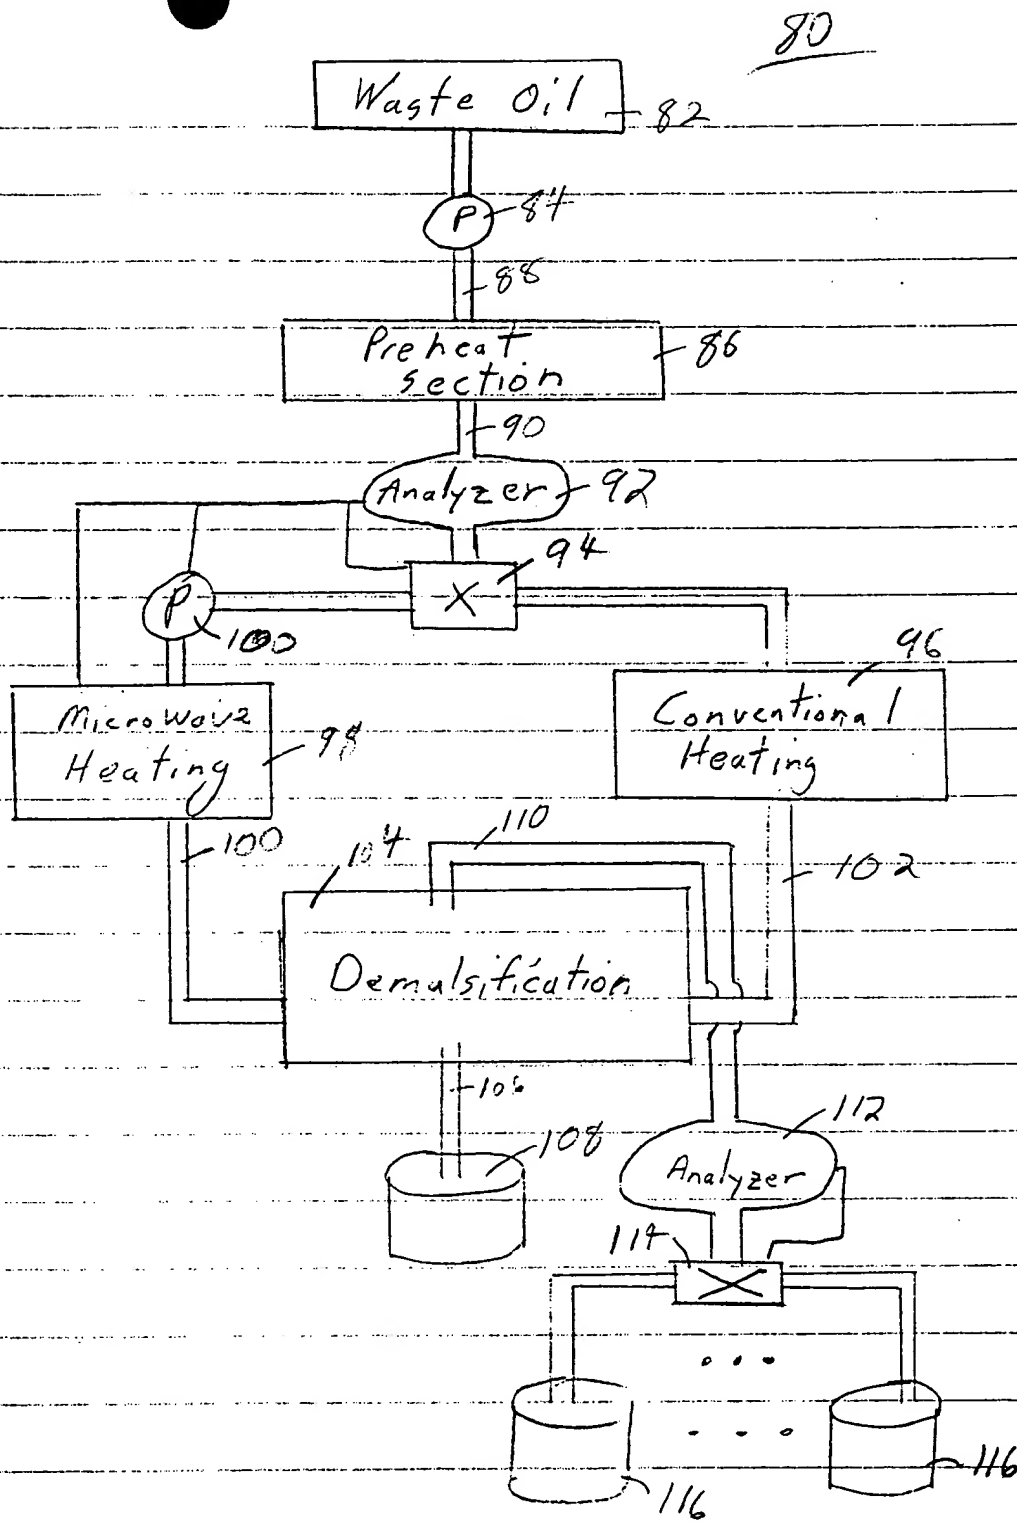 80
Waste Oil
82
P
84
88
Preheat
section
86
90
Analyzer
92
94
X
P
100
96
Microwave
Heating
98
Conventional
Heating
100
104
110
102
Demulsification
106
108
112
Analyzer
114
116
116